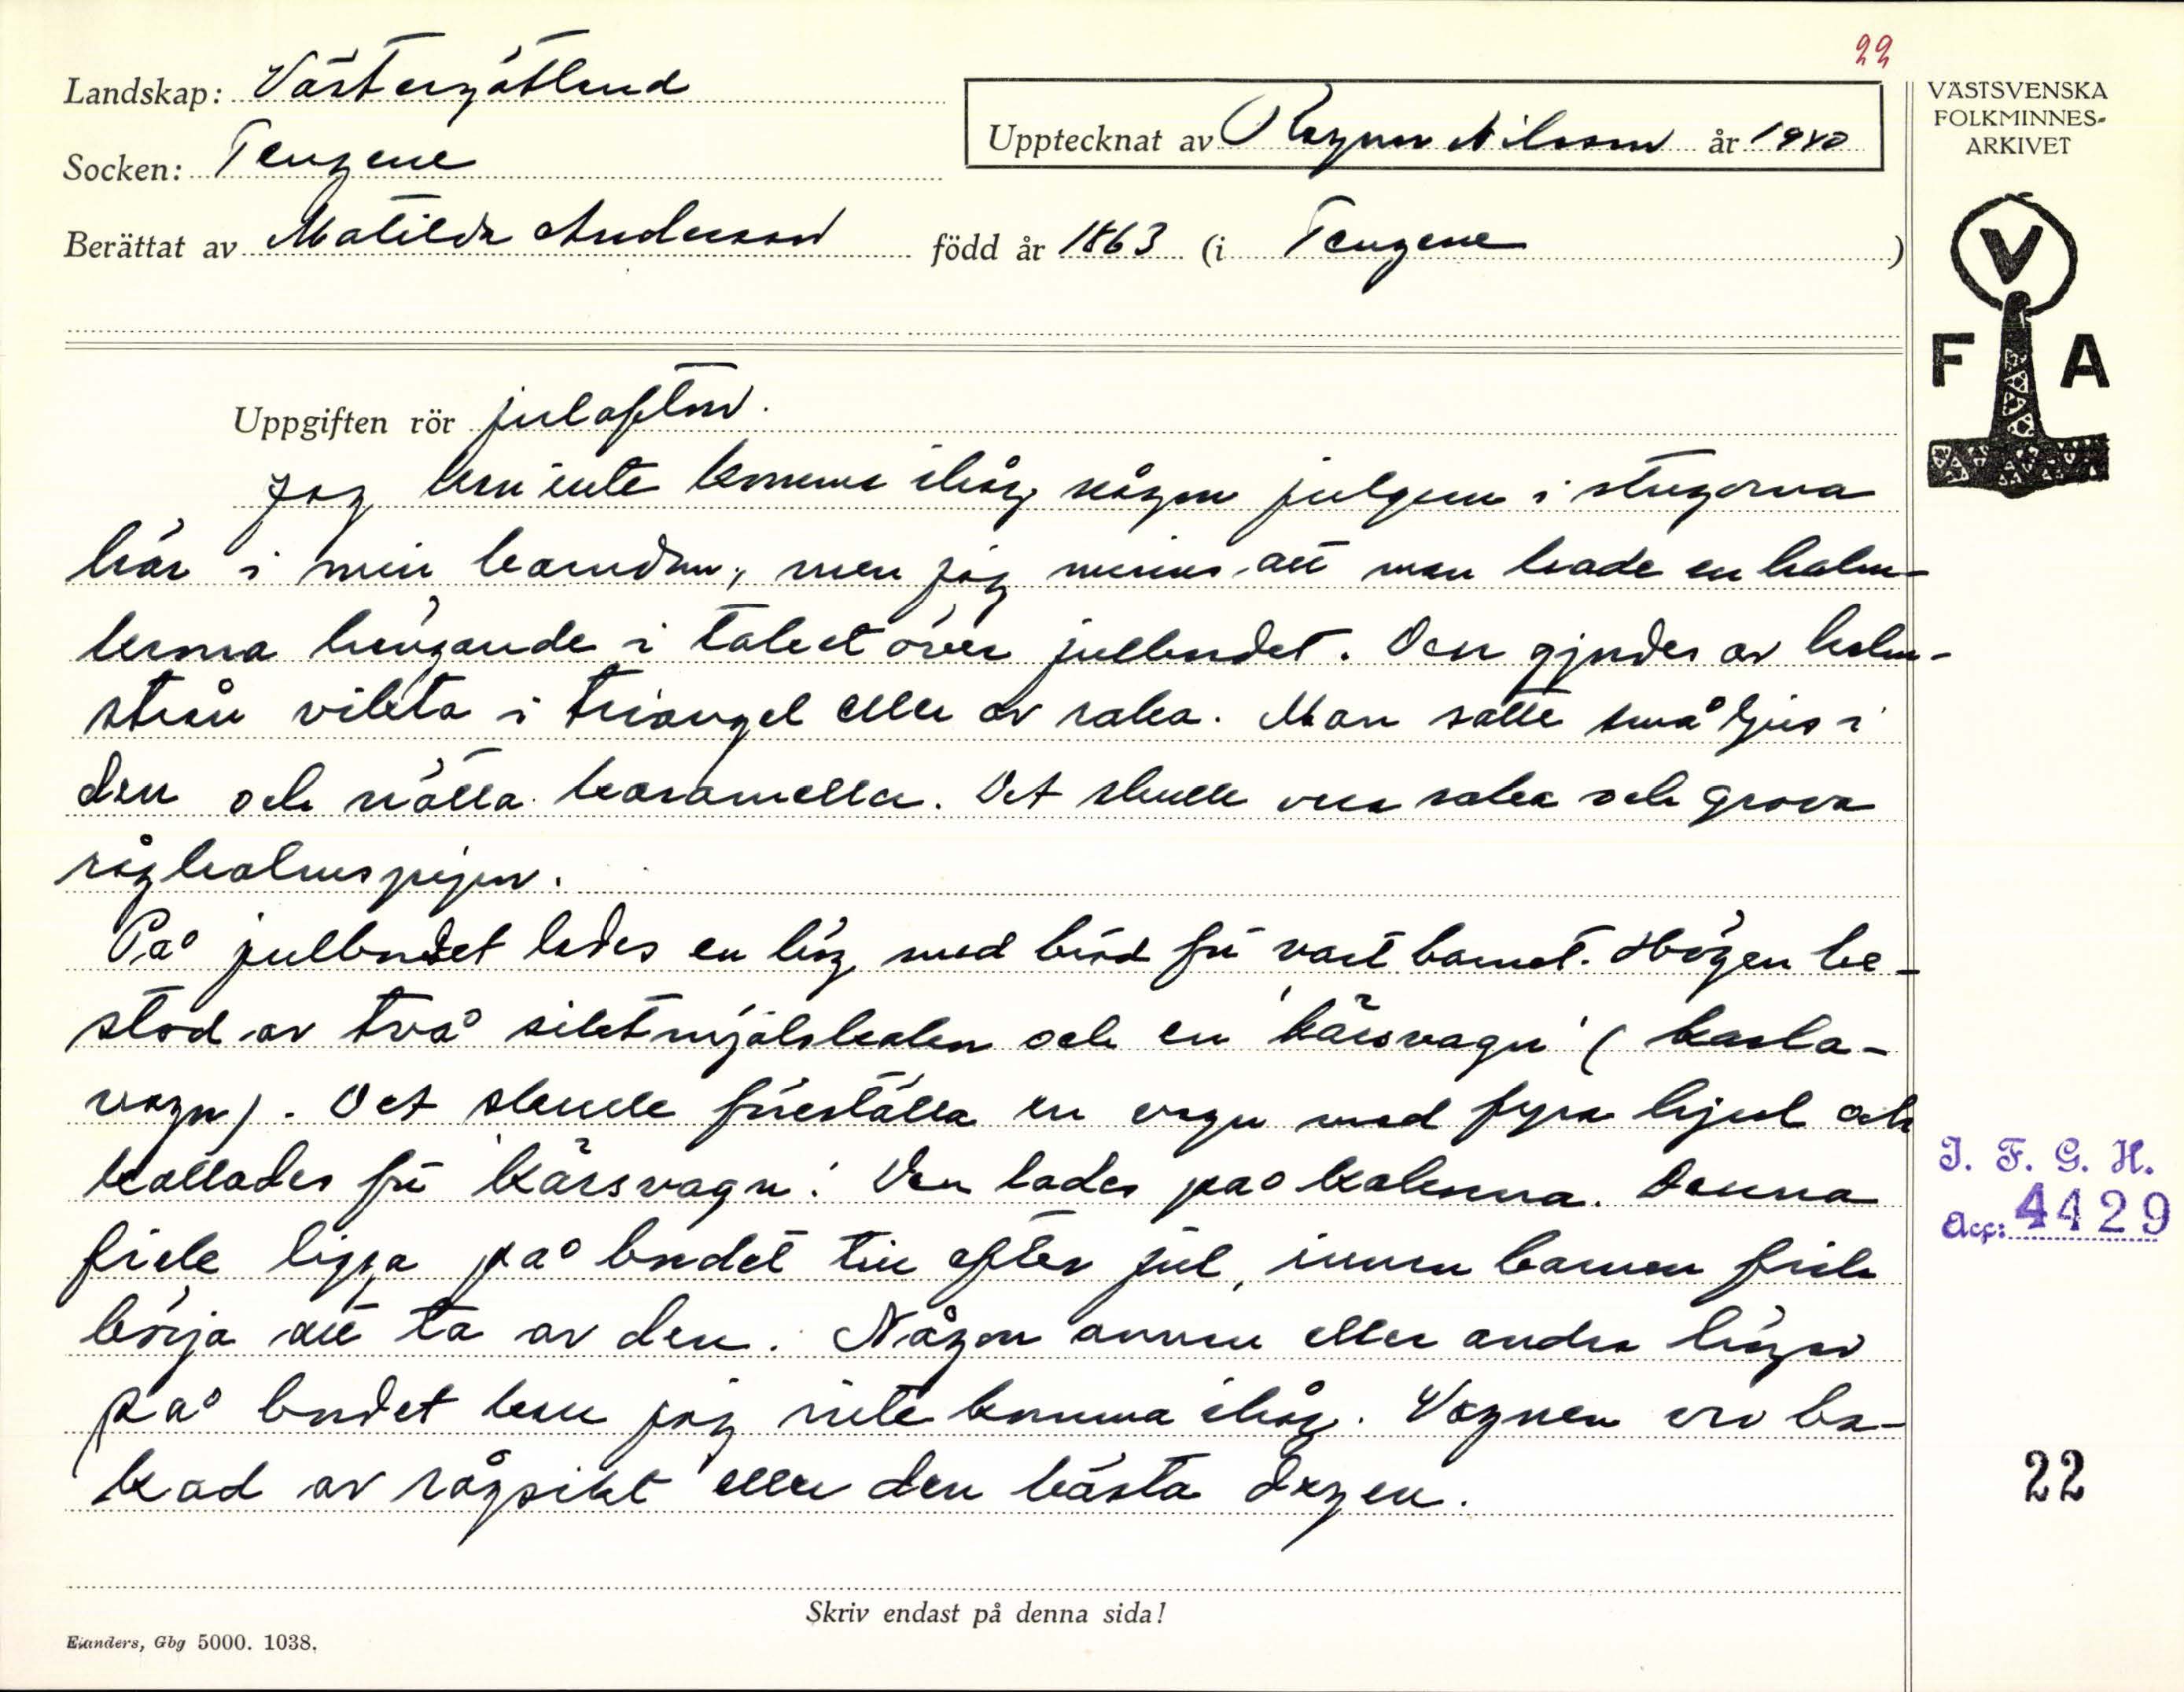 22
Landskap: Västergötland
Upptecknat av Ragnar Nilsson år 1940
VÄSTSVENSKA
FOLKMINNES-
ARKIVET
Socken: Tengene
Berättat av Matilda Andersson född år 1863 (i Tengene)
V
F A
Uppgiften rör julafton.
Jag kan inte komma ihåg någon julgran i stugorna
här i min barndom, men jag minns att man hade en halm-
krona hängande i taket över julbordet. Den gjordes av halm-
strån vikta i triangel eller av raka. Man satte små ljus i
den och några karameller. Det skulle vara raka och grova
råghalmspipor.
På julbordet lades en hög med bröd för vart barnet. Högen be-
stod av två siktmjölskakor och en 'kärsvagn' (karla-
vagn). Det skulle föreställa en vagn med fyra hjul och
kallades för 'kärsvagn'. Den lades på kakorna. Denna
fick ligga på bordet till efter jul, innan barnen fick
börja att ta av den. Någon annan eller andra högar
på bordet kan jag inte komma ihåg. Vagnen var ba-
kad av rågsikt eller den bästa degen.
I. F. G. H.
Acc: 4429
22
Skriv endast på denna sida!
Elanders, Gbg 5000. 1038.